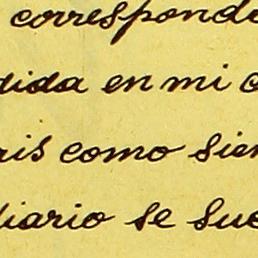 corresponde
dida en mi c
ris como sien
diario se suc